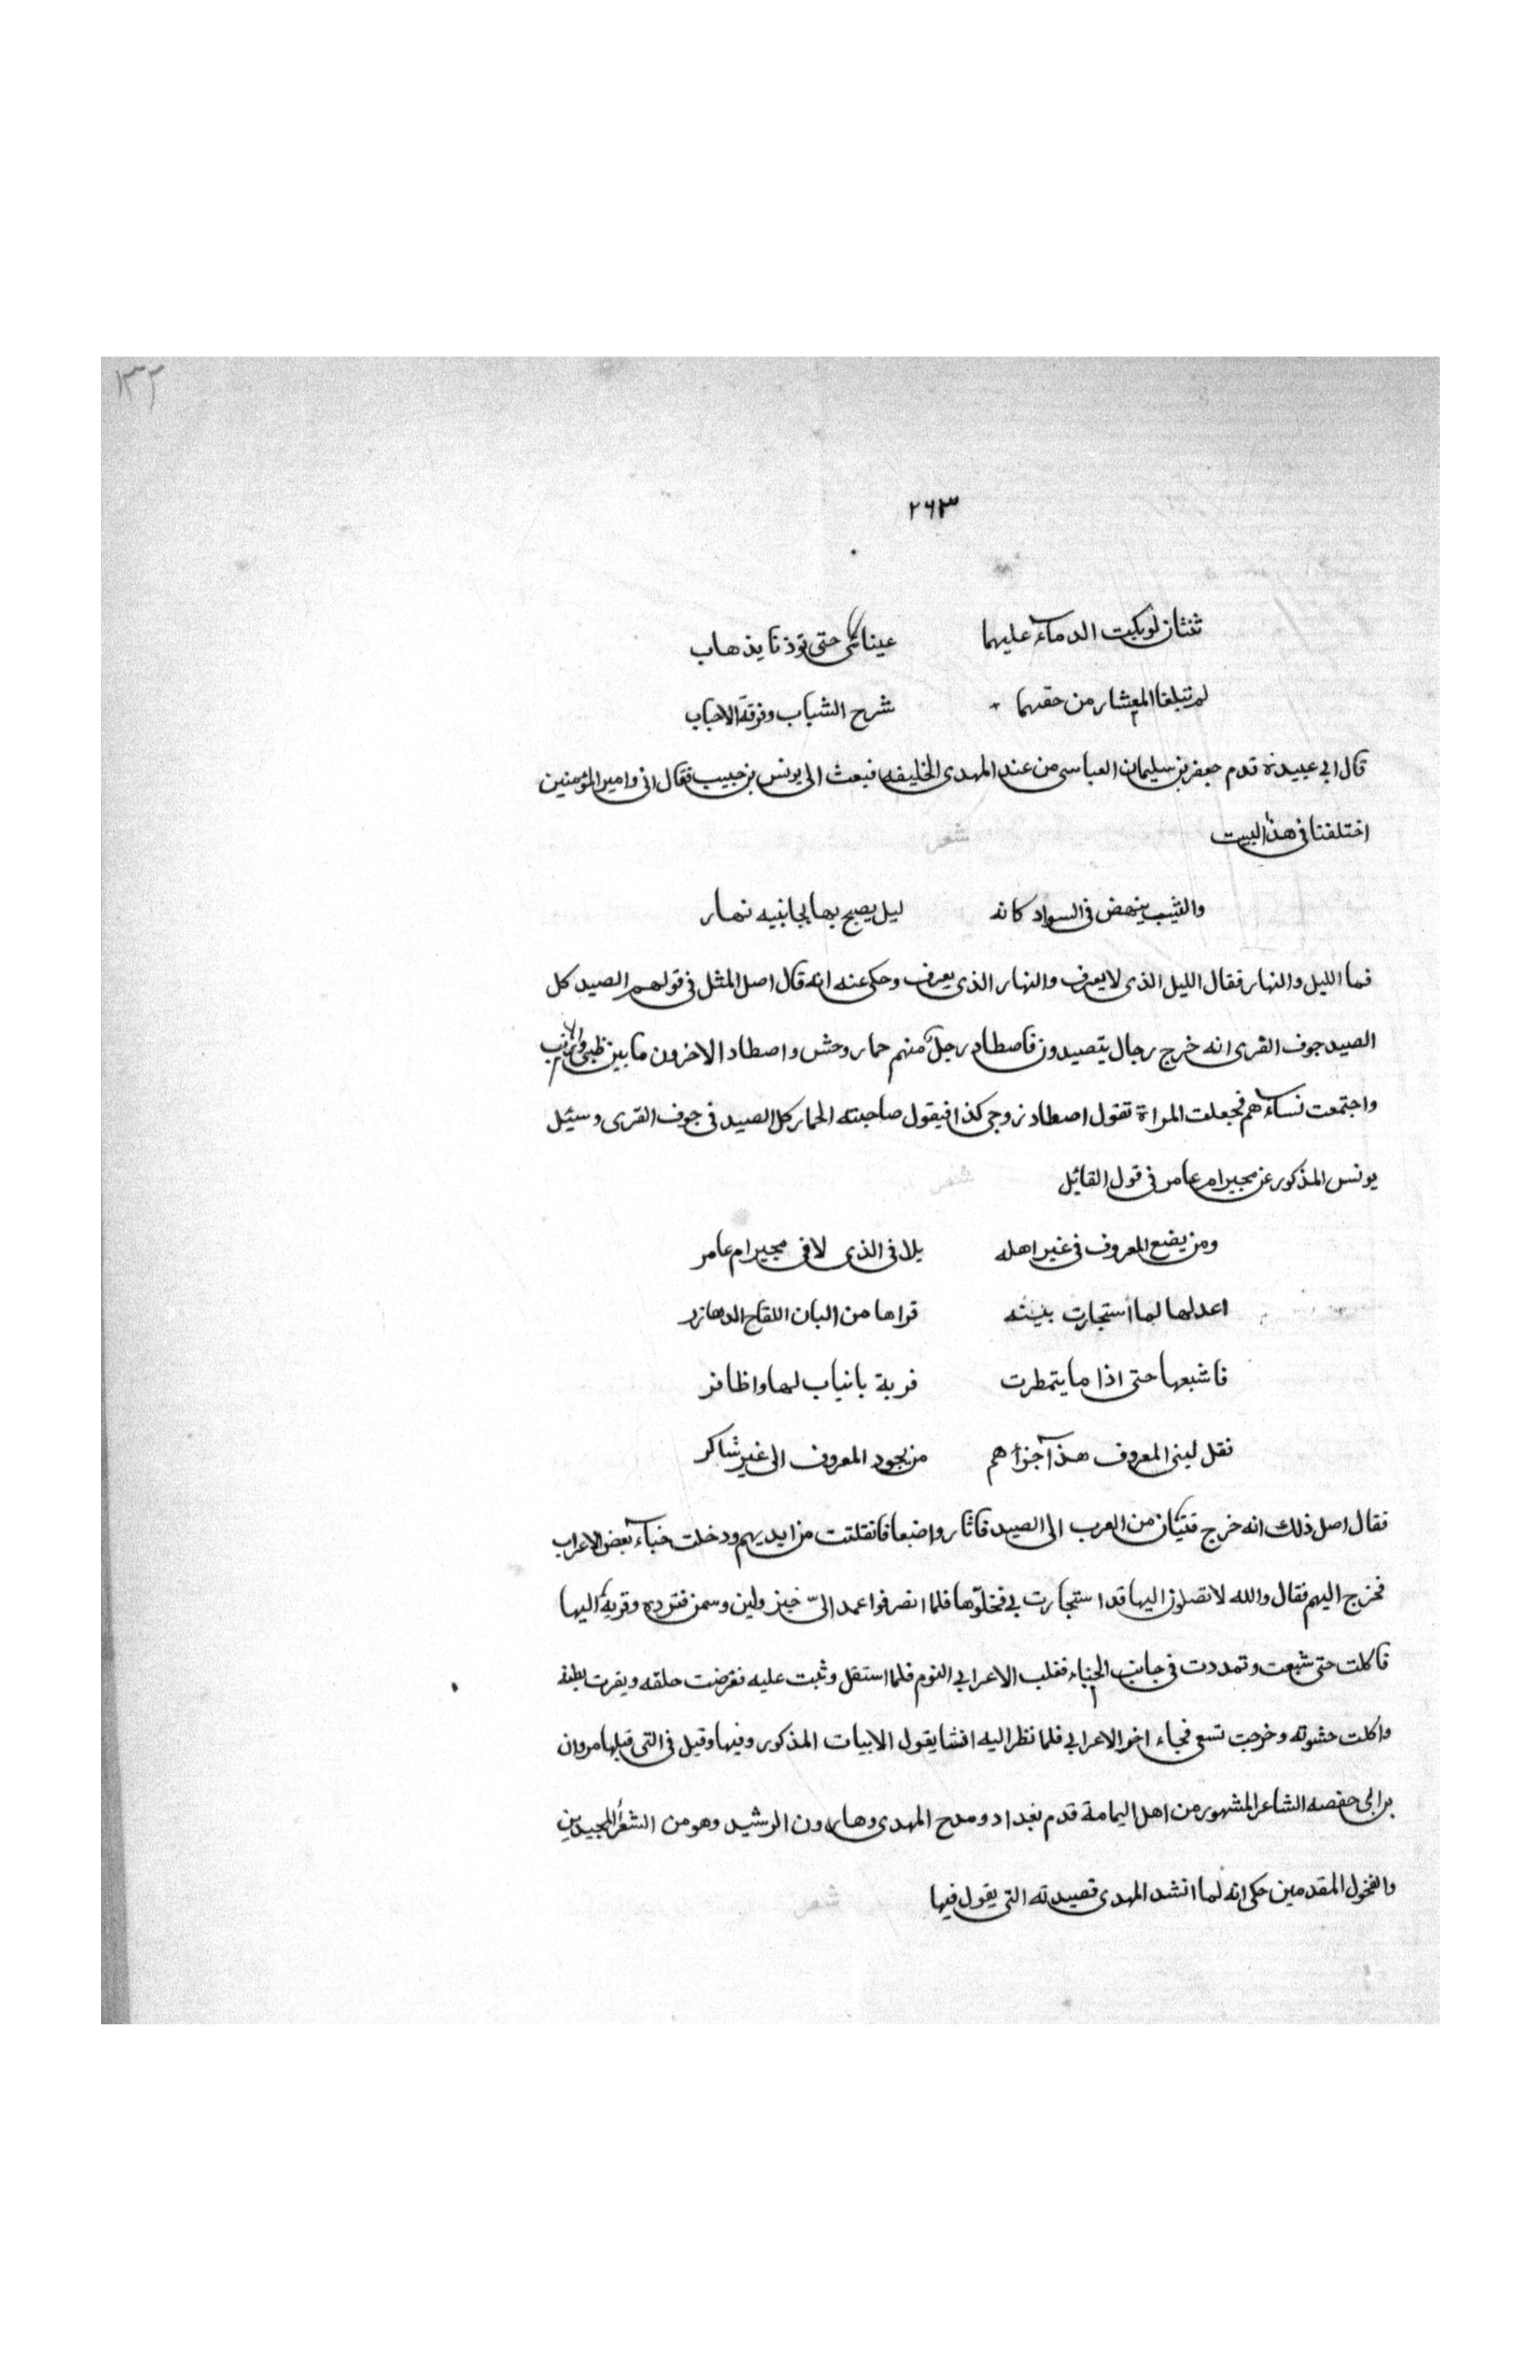 ١٣٢
٢٦٣
ثنتان لو بكت الدماء عليهما عيناى حتى تؤذنا بذهاب
لم تبلغا المعشار من حقهما شرح الشباب وفرقة الاحباب
قال ابى عبيدة قدم جعفر بن سليمان العباسى من عند المهدى الخليفه فبعث الى يونس بن حبيب فقال انى وامير المؤمنين
اختلفنا فى هذا البيت شعر
والشيب ينهض فى السواد كانه ليل يصبح بها بجانبيه نهار
فما الليل والنهار فقال الليل الذى لا يعرف والنهار الذى يعرف وحكى عنه انه قال اصل المثل فى قولهم الصيد كل
الصيد جوف الفرى انه خرج رجال يتصيدون فاصطاد رجل منهم حمار وحش واصطاد الاخرون ما بين ظبى وارنب
واجتمعت نساءهم فجعلت المراة تقول اصطاد زوجى كذا فيقول صاحبته الحمار كل الصيد فى جوف الفرى وسئيل
يونس المذكور عن مجير ام عامر فى قول القائيل شعر
ومن يضع المعروف فى غير اهله يلاقى الذى لاقى مجير ام عامر
اعد لها لما استجارت ببيته قراها من البان اللقاح الدهازر
فاشبعها حتى اذا ما يتمطرت فربة بانياب لها واظافر
فقل لبنى المعروف هذا جزاهم من يجود المعروف الى غير شاكر
فقال اصل ذلك انه خرج فتيان من العرب الى الصيد فاثاروا ضبعا فانفلتت من ايديهم ودخلت خباء بعض الاعراب
فخرج اليهم فقال والله لا تصلون اليها قد استجارت بى فخلوها فلما انصرفوا عمد الى خبز ولبن وسمن فثرده وقربه اليها
فاكلت حتى شبعت وتمددت فى جانب الخباء فغلب الاعرابى النوم فلما استقل وثبت عليه فقرضت حلقه وبقرت بطنه
واكلت حشوته وخرجت تسعى فجاء اخو الاعرابى فلما نظر اليه انشا يقول الابيات المذكور وفيها وقيل فى التى قبلها مروان
بن ابى حفصه الشاعر المشهور من اهل اليمامة قدم بغداد ومدح المهدى وهارون الرشيد وهو من الشعراء المجيدين
والفحول المقدمين حكى انه لما انشد المهدى قصيدته التى يقول فيها شعر